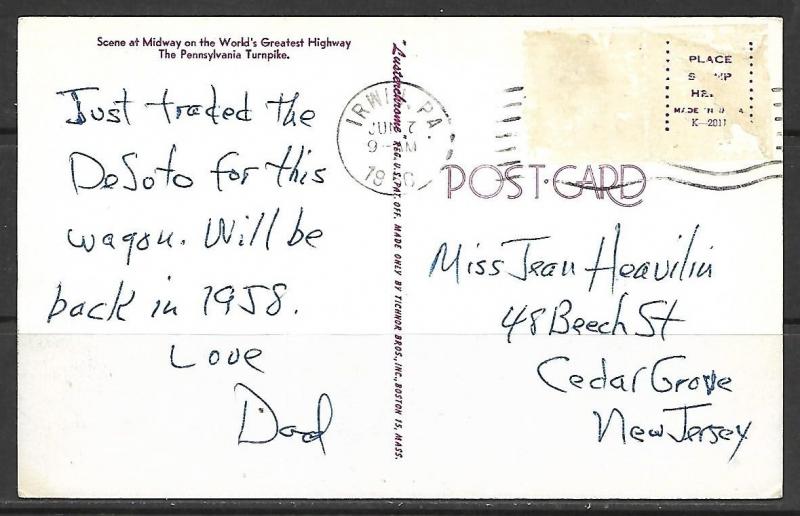 Scene at Midway on the World's Greatest Highway
The Pennsylvania Turnpike.
Just traded the
DeSoto for this
wagon. Will be
back in 1958.
Love
Dad
"Lusterchrome" REG. U.S. PAT. OFF. MADE ONLY BY TICHNOR BROS., INC., BOSTON 15, MASS.
IRWIN, PA.
JUN 7
9- M
19
PLACE
HE
MADE IN A
K-2011
POST-CARD
Miss Jean Heavilin
48 Beech St
Cedar Grove
New Jersey